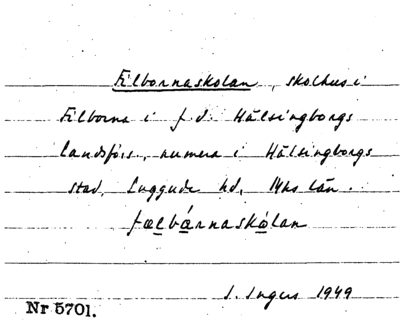 Filbornaskolan, skolhus i
Filborna i f. d. Hälsingborgs
landsförs., numera i Hälsingborgs
stad, Luggude hd, Mhs län.
fælbárnaskòlan
I. Ingers 1949
Nr 5701.